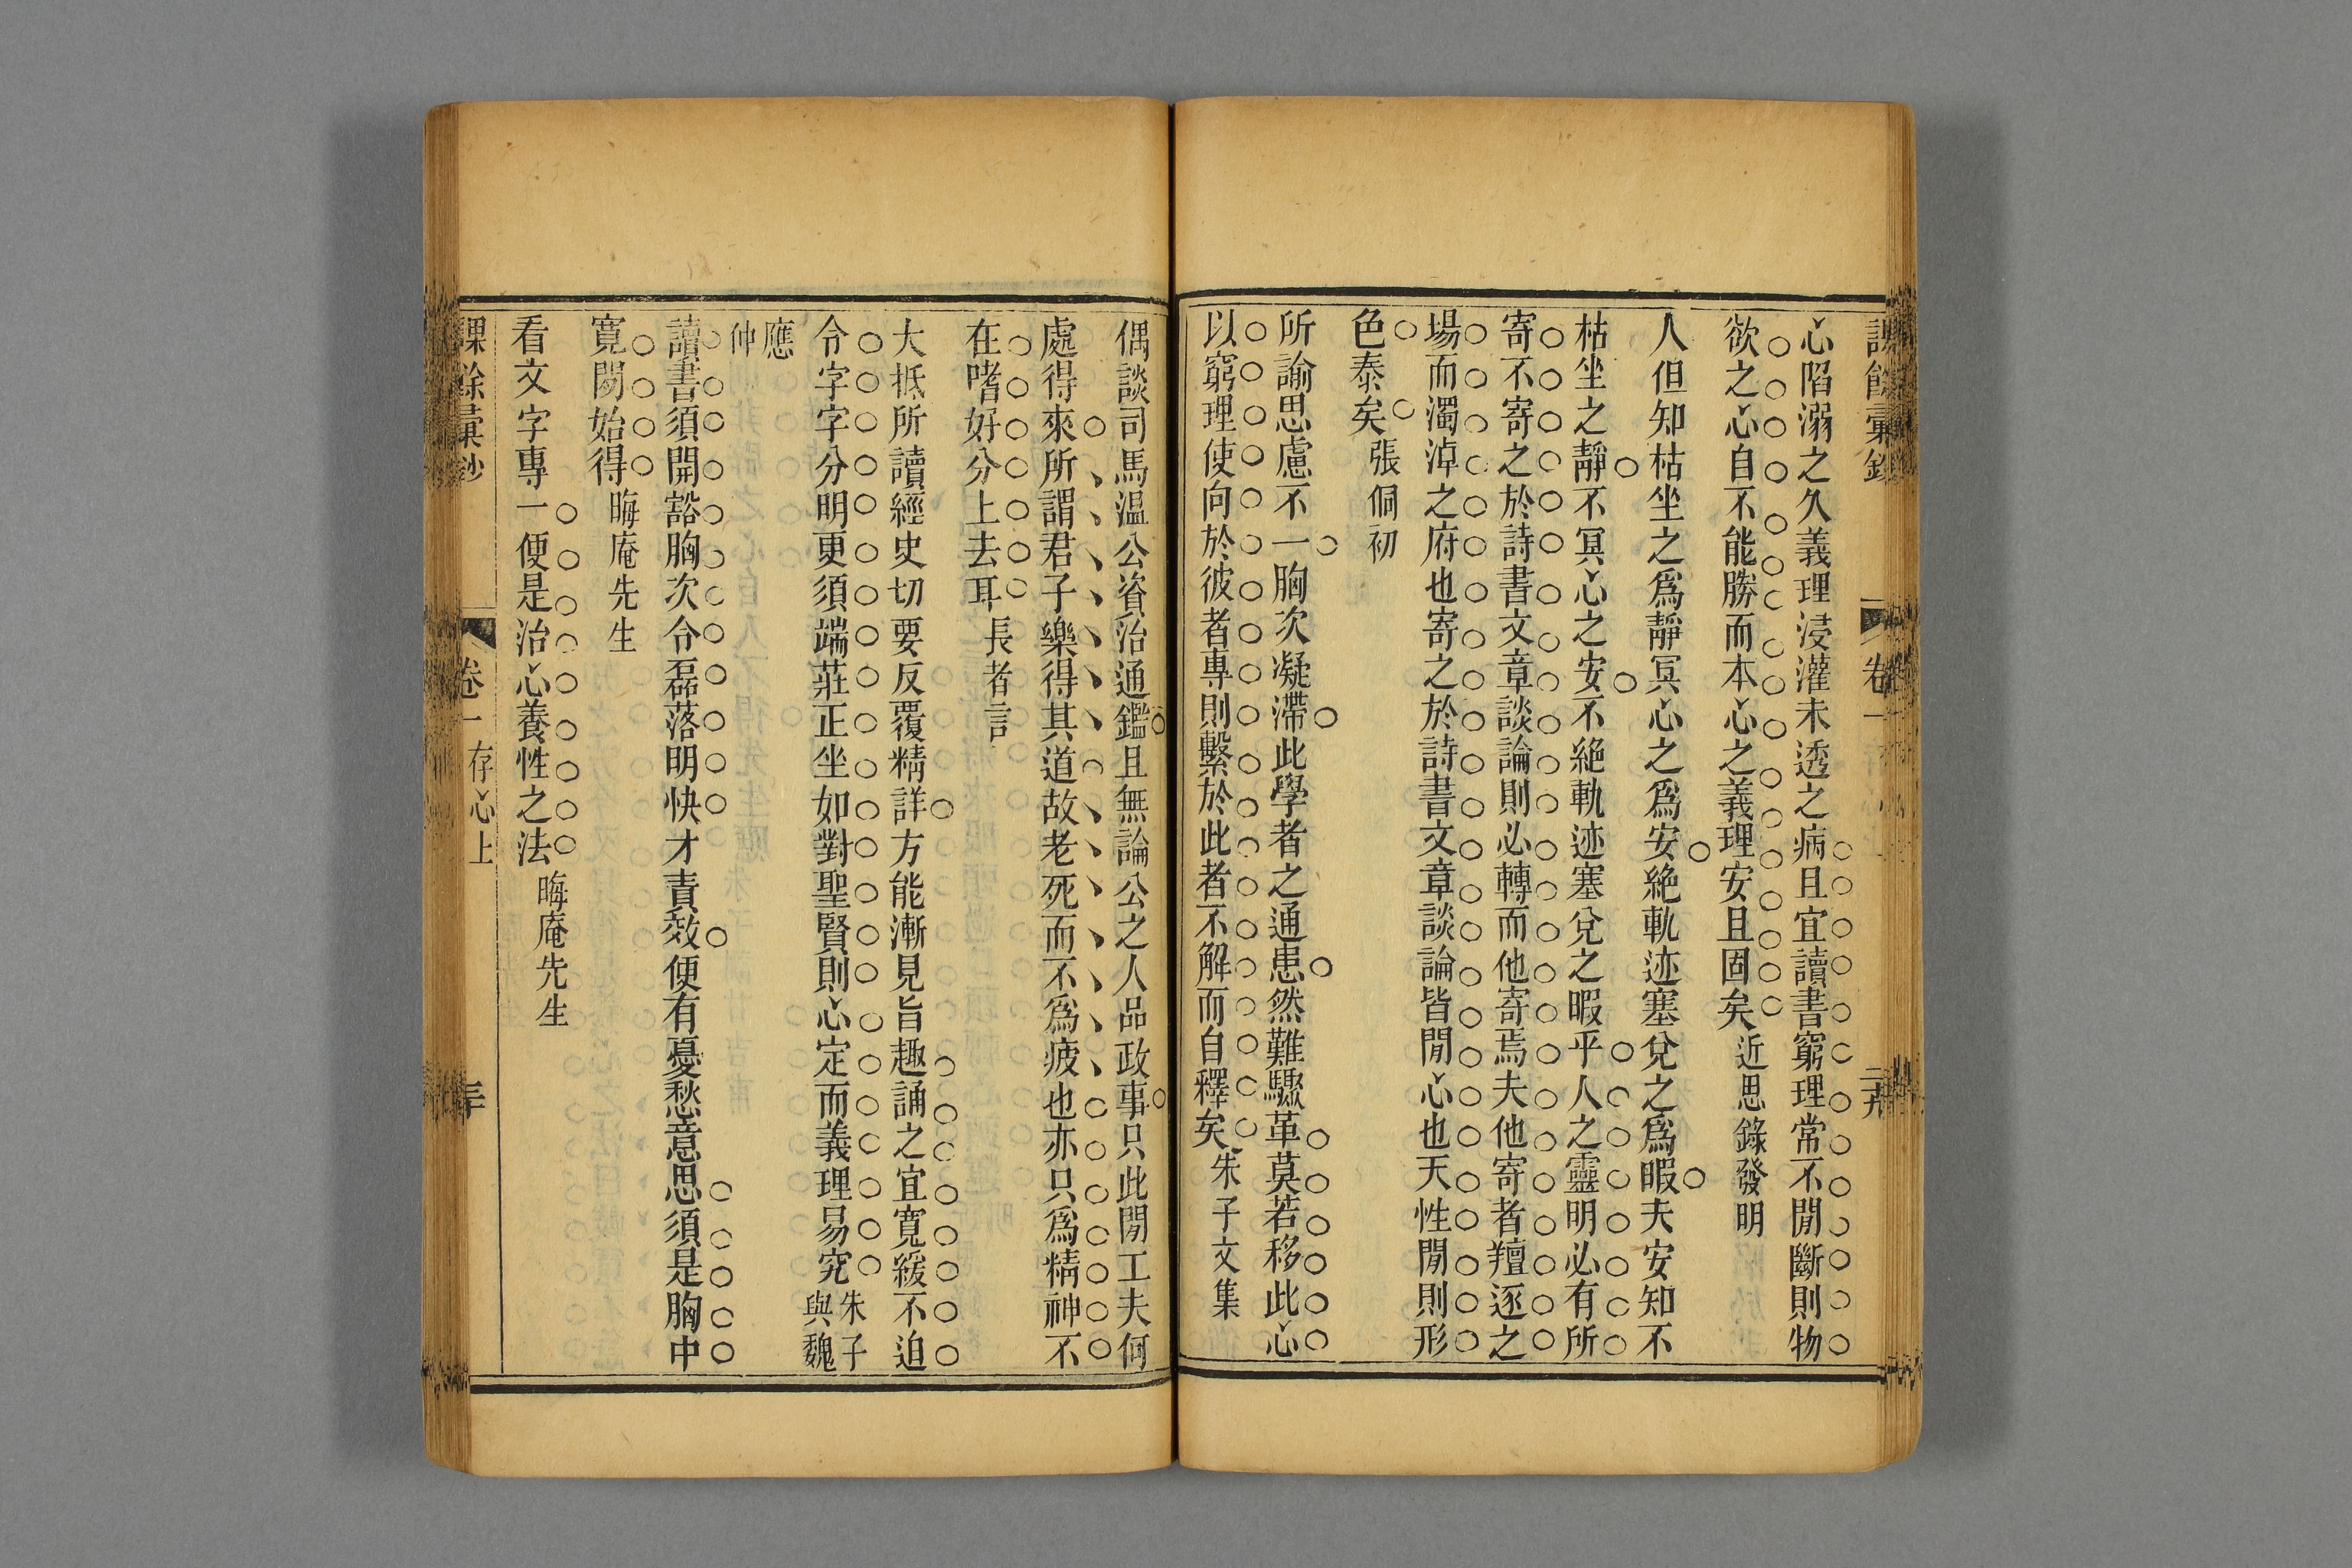 心陷溺之久義理浸灌未透之病且宜讀書窮理常不閒斷則物
欲之心自不能勝而本心之義理安且固矣近思錄發明
人但知枯坐之爲靜冥心之爲安絶軌迹塞兌之爲暇夫安知不
枯坐之靜不冥心之安不絶軌迹塞兌之暇乎人之靈明必有所
寄不寄之於詩書文章談論則必轉而他寄焉夫他寄者羶逐之
場而濁淖之府也寄之於詩書文章談論皆閒心也天性閒則形
色泰矣張侗初
所諭思慮不一胸次凝滯此學者之通患然難驟革莫若移此心
以窮理使向於彼者專則繫於此者不解而自釋矣朱子文集
偶談司馬温公資治通鑑且無論公之人品政事只此閒工夫何
處得來所謂君子樂得其道故老死而不爲疲也亦只爲精神不
在嗜好分上去耳長者言
大抵所讀經史切要反覆精詳方能漸見旨趣誦之宜寛緩不迫
令字字分明更須端莊正坐如對聖賢則心定而義理易究朱子與魏
應仲
讀書須開豁胸次令磊落明快才責效便有憂愁意思須是胸中
寛閎始得晦庵先生
看文字專一便是治心養性之法晦庵先生
課餘彙鈔 卷一 存心上 三十